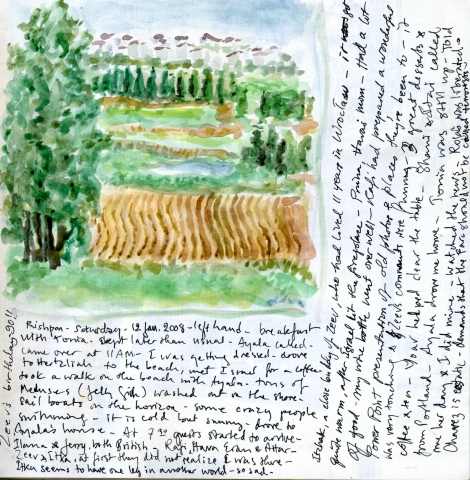 Rishpon - Saturday - 12 Jan. 2008 - left hand - breakfast
with Tonia. Slept later than usual - Ayala called -
came over at 11AM - I was getting dressed - drove
to Hertzliah to the beach, met Israel for a coffee -
took a walk on the beach with Ayala. tons of
Meduses (Jelly fish) washed out on the shore -
Sail boats on the horizon - some crazy people
swimming - it is cold but sunny, drove to
Ayala's house - At 7 30 guests started to arrive -
Ilana & Jerry, both British - Rafi, Hava Eran & Attar -
Zeev & Itka, at first they did not realize I was there -
Itka seems to have one leg in another world - so sad -
Zeev's birthday 90!!
Itshak, a close buddy of Zeev, who had lived 11 years in Wroclaw - it was
quite warm, after Israel lit the fireplace - Pnina, Havai mom - Had a lot
of food - my wine bottle went over well - Rafi had prepared a wonderful
Power Point presentation of old photos of places they've been to - it
was very touching & Zeev's comments were funny - 3 great desserts &
coffee & tea - Yoav helped clear the table - Shami & Gtai called
from Portland - Ayala drove me home - Tonia was still up - Told
me her day & I did mine - I was glad the